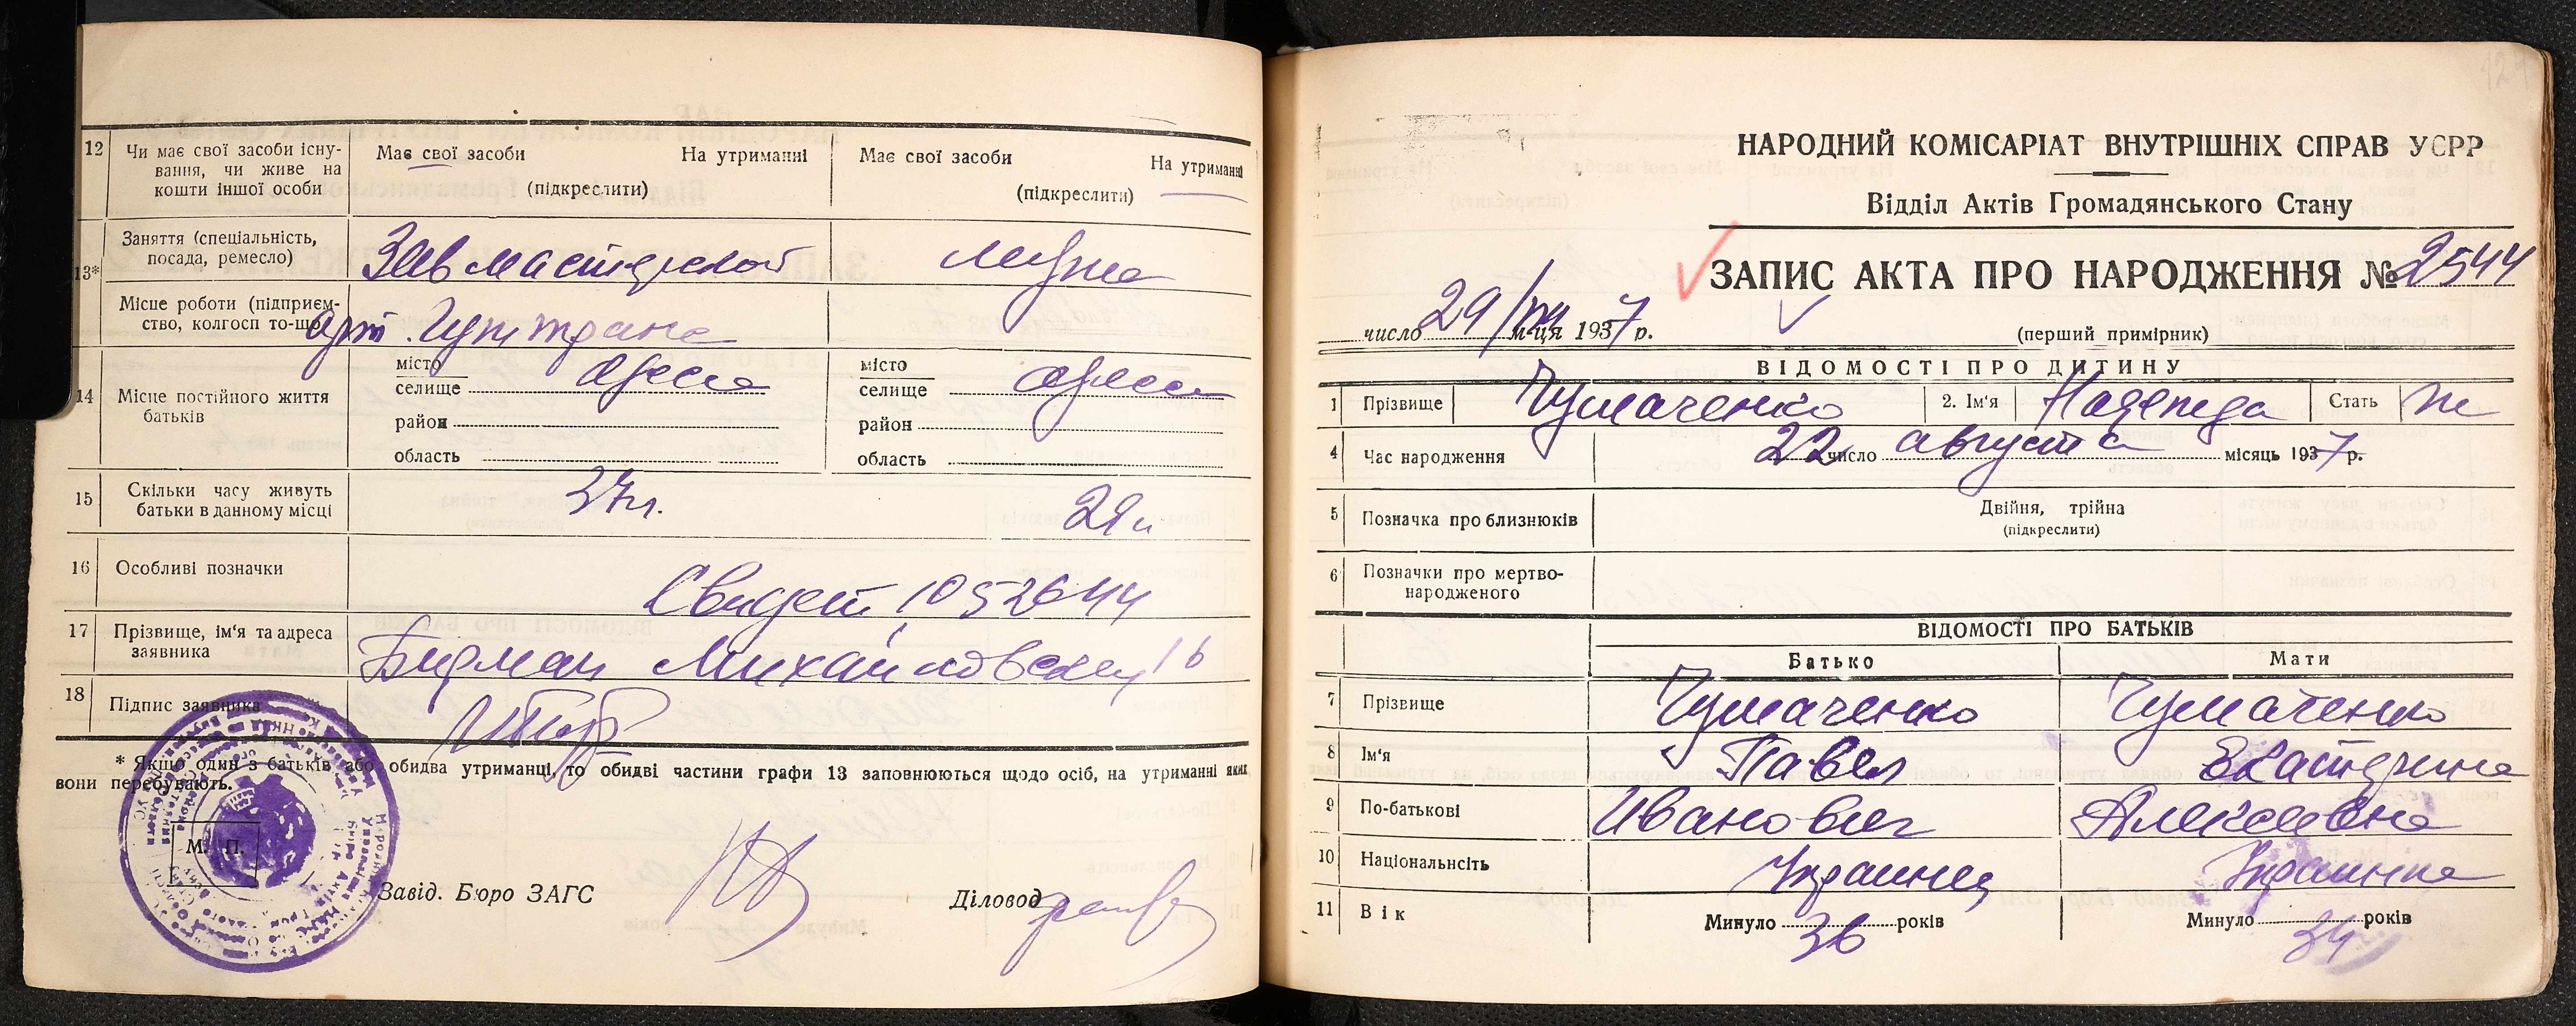 12 Чи має свої засоби існування, чи живе на кошти іншої особи
Має свої засоби На утриманні
(підкреслити)
Має свої засоби На утриманні
(підкреслити)
13* Заняття (спеціальність, посада, ремесло)
Зав мастерской
мужа
Місце роботи (підприємство, колгосп то-що)
арт.
14 Місце постійного життя батьків
місто
селище Одесса
район
область
місто
селище Одесса
район
область
15 Скільки часу живуть батьки в данному місці
29л
16 Особливі позначки
Свидет 1052644
17 Прізвище, ім'я та адреса заявника
Бирман Михайловская 16
18 Підпис заявника
* Якщо один з батьків або обидва утриманці, то обидві частини графи 13 заповнюються щодо осіб, на утриманні яких
вони перебувають.
М. П.
Завід. Бюро ЗАГС
Діловод
НАРОДНИЙ КОМІСАРІАТ ВНУТРІШНІХ СПРАВ УСРР
Відділ Актів Громадянського Стану
ЗАПИС АКТА ПРО НАРОДЖЕННЯ № 2544
число 29/VIII м-ця 1937 р.
(перший примірник)
ВІДОМОСТІ ПРО ДИТИНУ
1 Прізвище Чумаченко 2. Ім'я Надежда Стать ж
4 Час народження 22 число августа місяць 1937 р.
5 Позначка про близнюків
Двійня, трійня
(підкреслити)
6 Позначки про мертвонародженого
ВІДОМОСТІ ПРО БАТЬКІВ
Батько Мати
7 Прізвище Чумаченко Чумаченко
8 Ім'я Павел Екатерина
9 По-батькові Иванович Алексеевна
10 Національнсіть Украинец Украинка
11 Вік Минуло 36 років Минуло 34 років